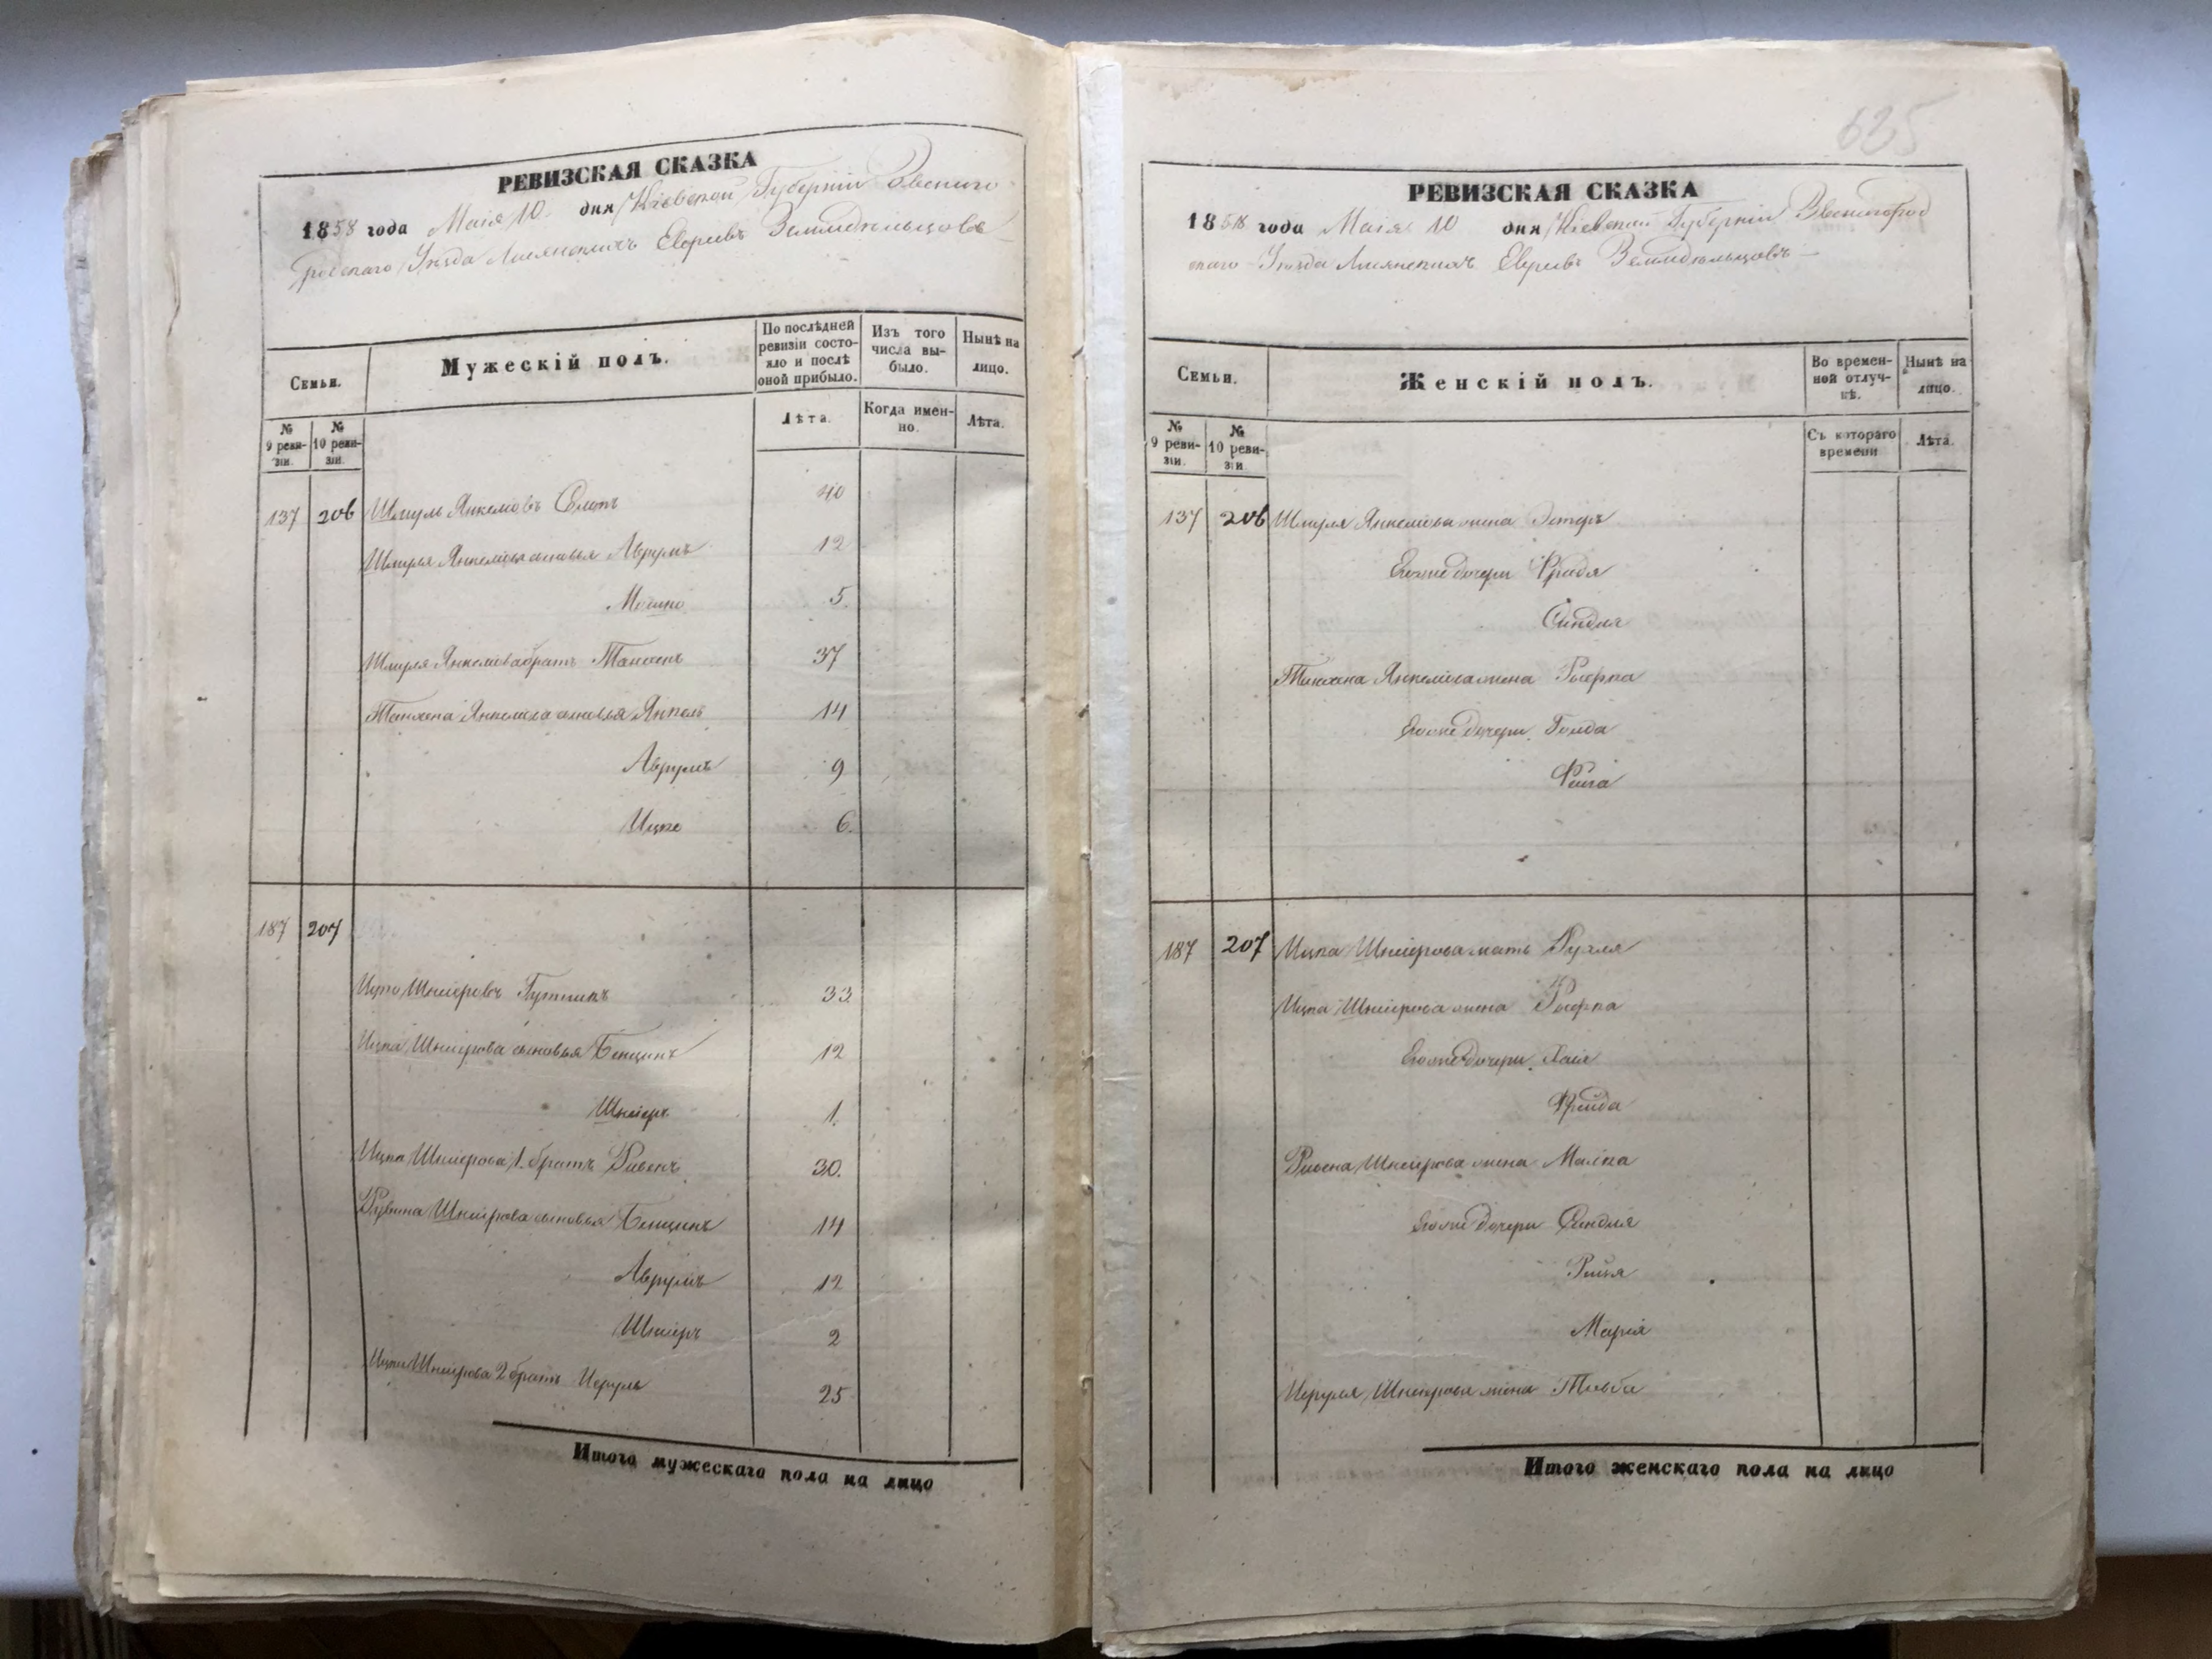 РЕВИЗСКАЯ СКАЗКА
1858 года Маія 10 дня Кіевской Губерніи Звениго
родскаго Уѣзда Лисянскихъ Евреевъ Земледѣльцовъ
Семьи.
Мужескій полъ.
По послѣдней ревизіи состо-
яло и послѣ
оной прибыло.
Изъ того
числа вы-
было.
Нынѣ на
лицо.
№
9 реви-
зіи.
№
10 реви-
зіи.
Лѣта.
Когда имен-
но.
Лѣта.
137 206 Шмуль Янкелевъ 40
Шмуля Янкелева сыновья Аврумъ 12
Мошко 5.
Шмуля Янкелева братъ Танхенъ 37
Танхена Янкелева сыновья Янкель 14
Аврумъ 9
Ицко 6.
187 207
Ицко Шнееровъ Гутникъ 33
Ицка Шнеерова сыновья Бенцинъ 12
Шнееръ 1.
Ицка Шнеерова 1. братъ Рувенъ 30.
Рувина Шнеерова сыновья Бенцинъ 14
Аврумъ 12
Шнееръ 2
Ицка Шнеерова 2 братъ Исруль 25
Итого мужескаго пола на лицо
625
РЕВИЗСКАЯ СКАЗКА
1858 года Маія 10 дня Кіевской Губерніи Звенигород
скаго Уѣзда Лисянскихъ Евреевъ Земледѣльцовъ
Семьи.
Женскій полъ.
Во времен-
ной отлуч-
кѣ.
Нынѣ на
лицо.
№
9 реви-
зіи.
№
10 реви-
зіи.
Съ котораго
времени
Лѣта.
137 206 Шмуля Янкелева жена Эстеръ
Его же дочери Фрадя
Синдля
Танхена Янкелева жена Рыфка
Его же дочери Голда
Фейга
187 207 Ицка Шнеерова мать Рухля
Ицка Шнеерова жена Рыфка
Его же дочери Хаія
Фрейда
Рувена Шнеерова жена Малка
Его же дочери Синдля
Марія
Исруля Шнеерова жена Тавба
Итого женскаго пола на лицо